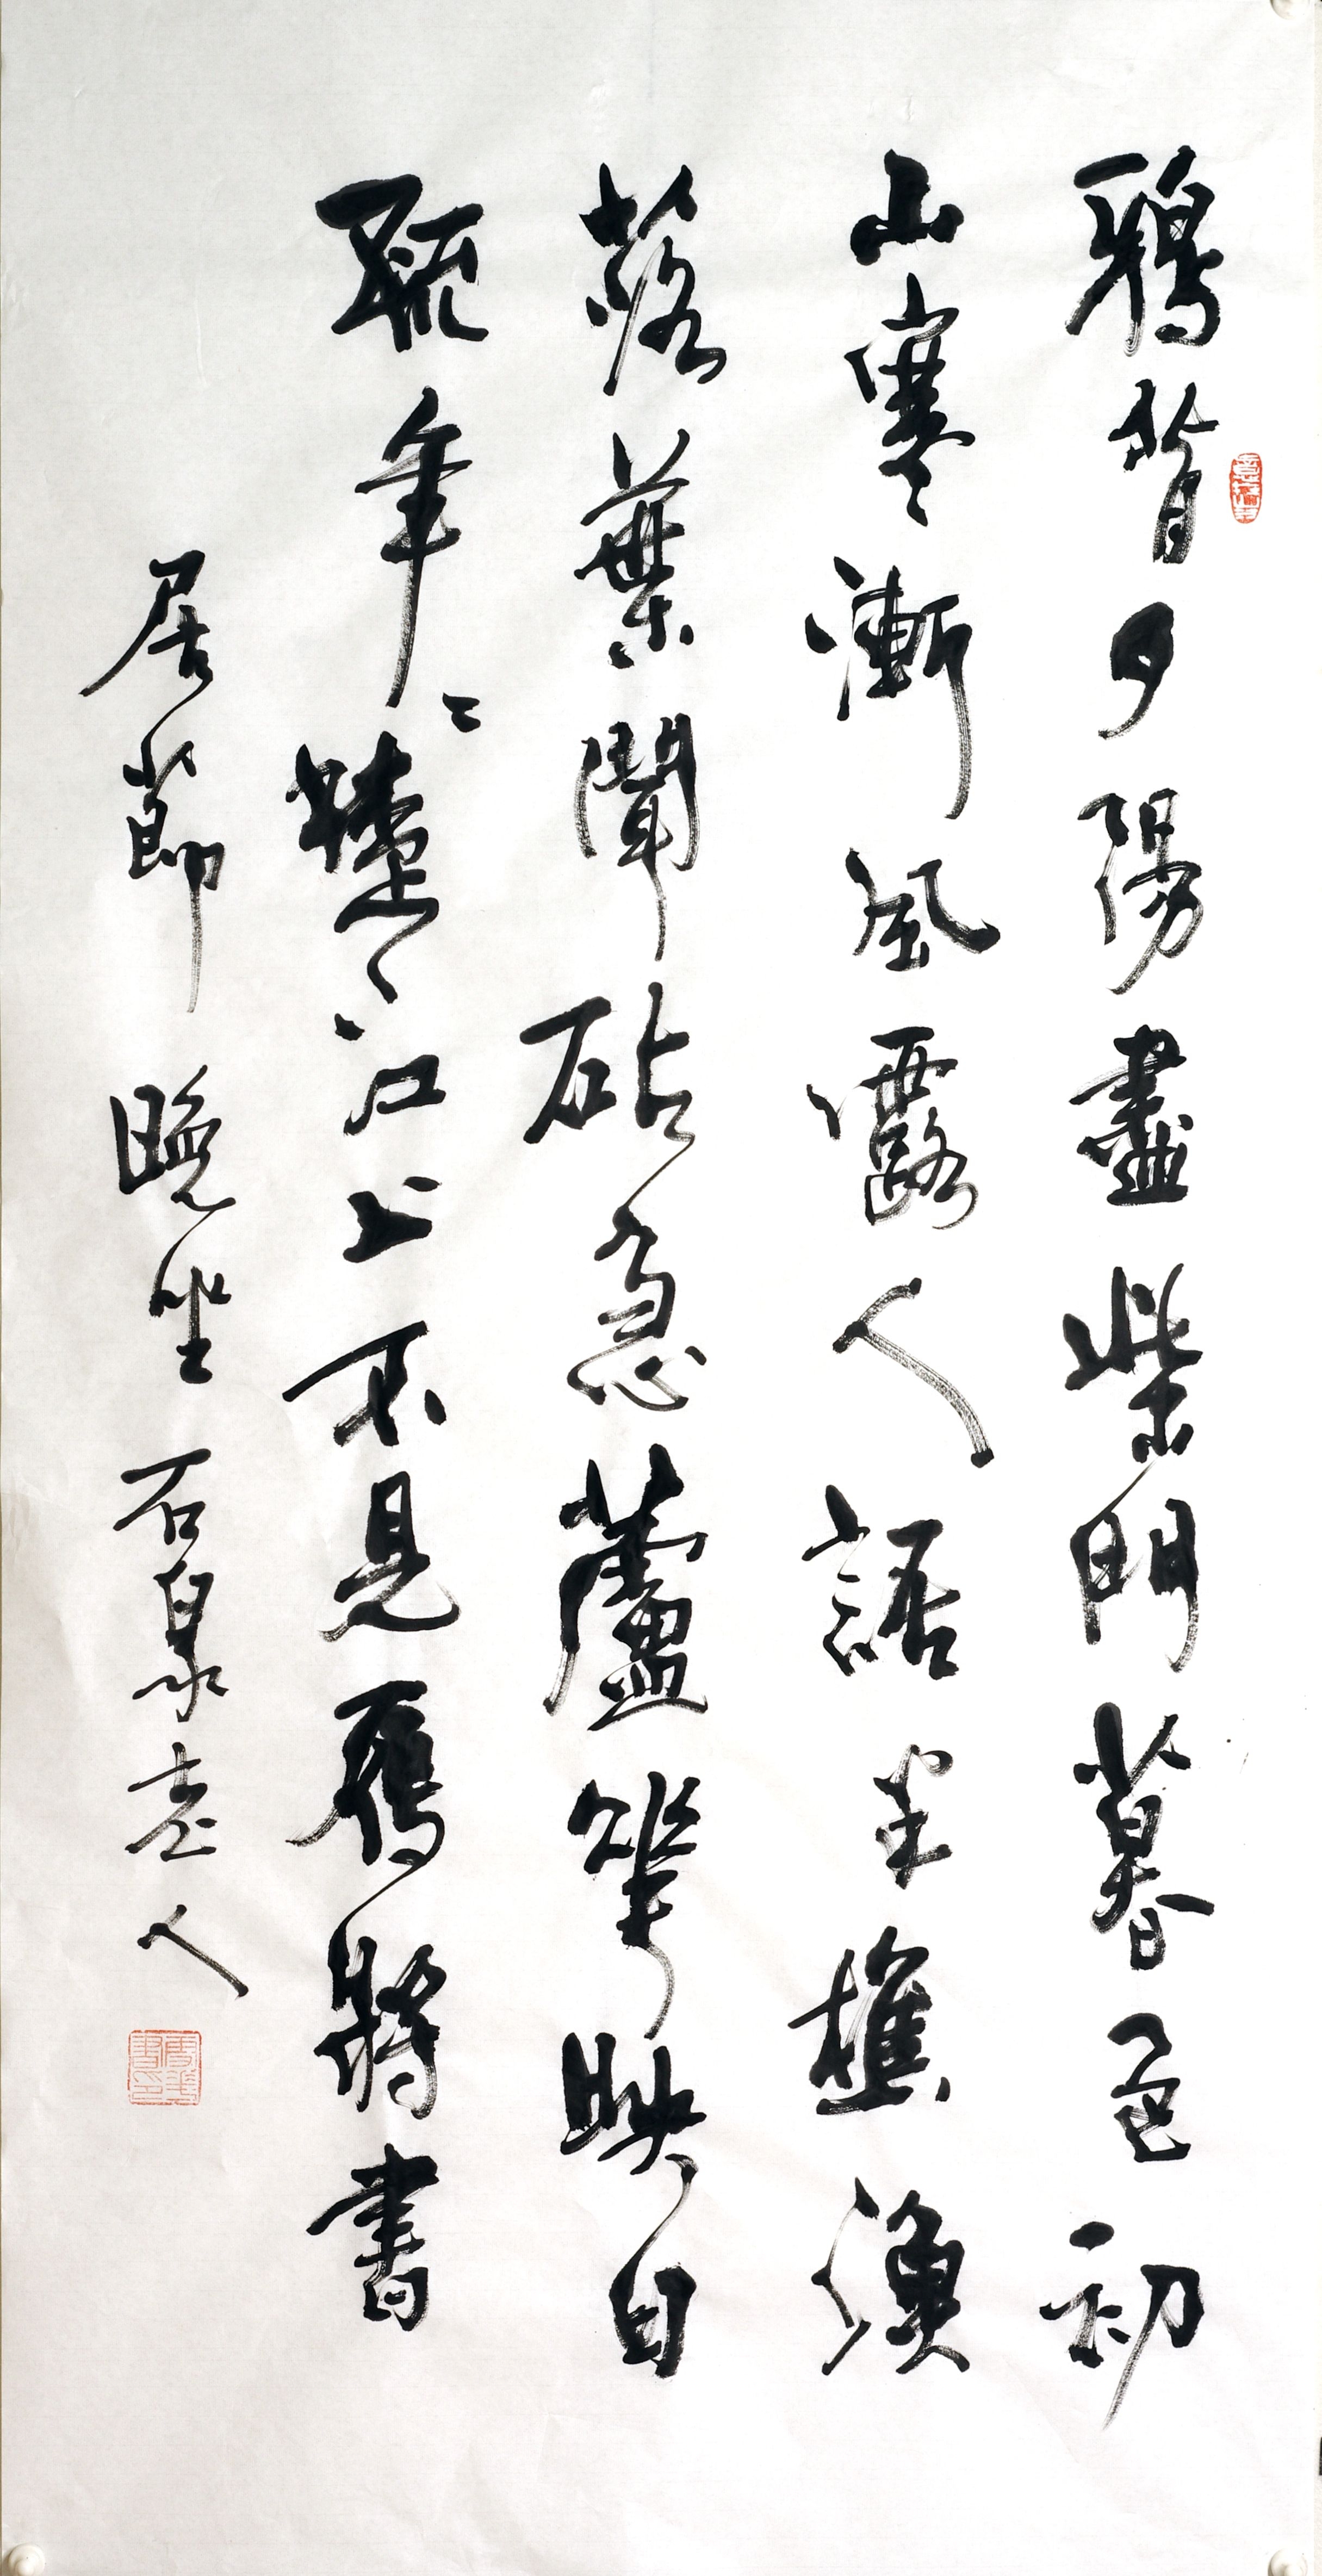 鴉背夕陽盡柴門暮色初
山寒漸風露人語半樵漁
落葉聞砧急蘆華映月
疏年々楚江上不見鴈將書
居節 晚坐 石泉老人